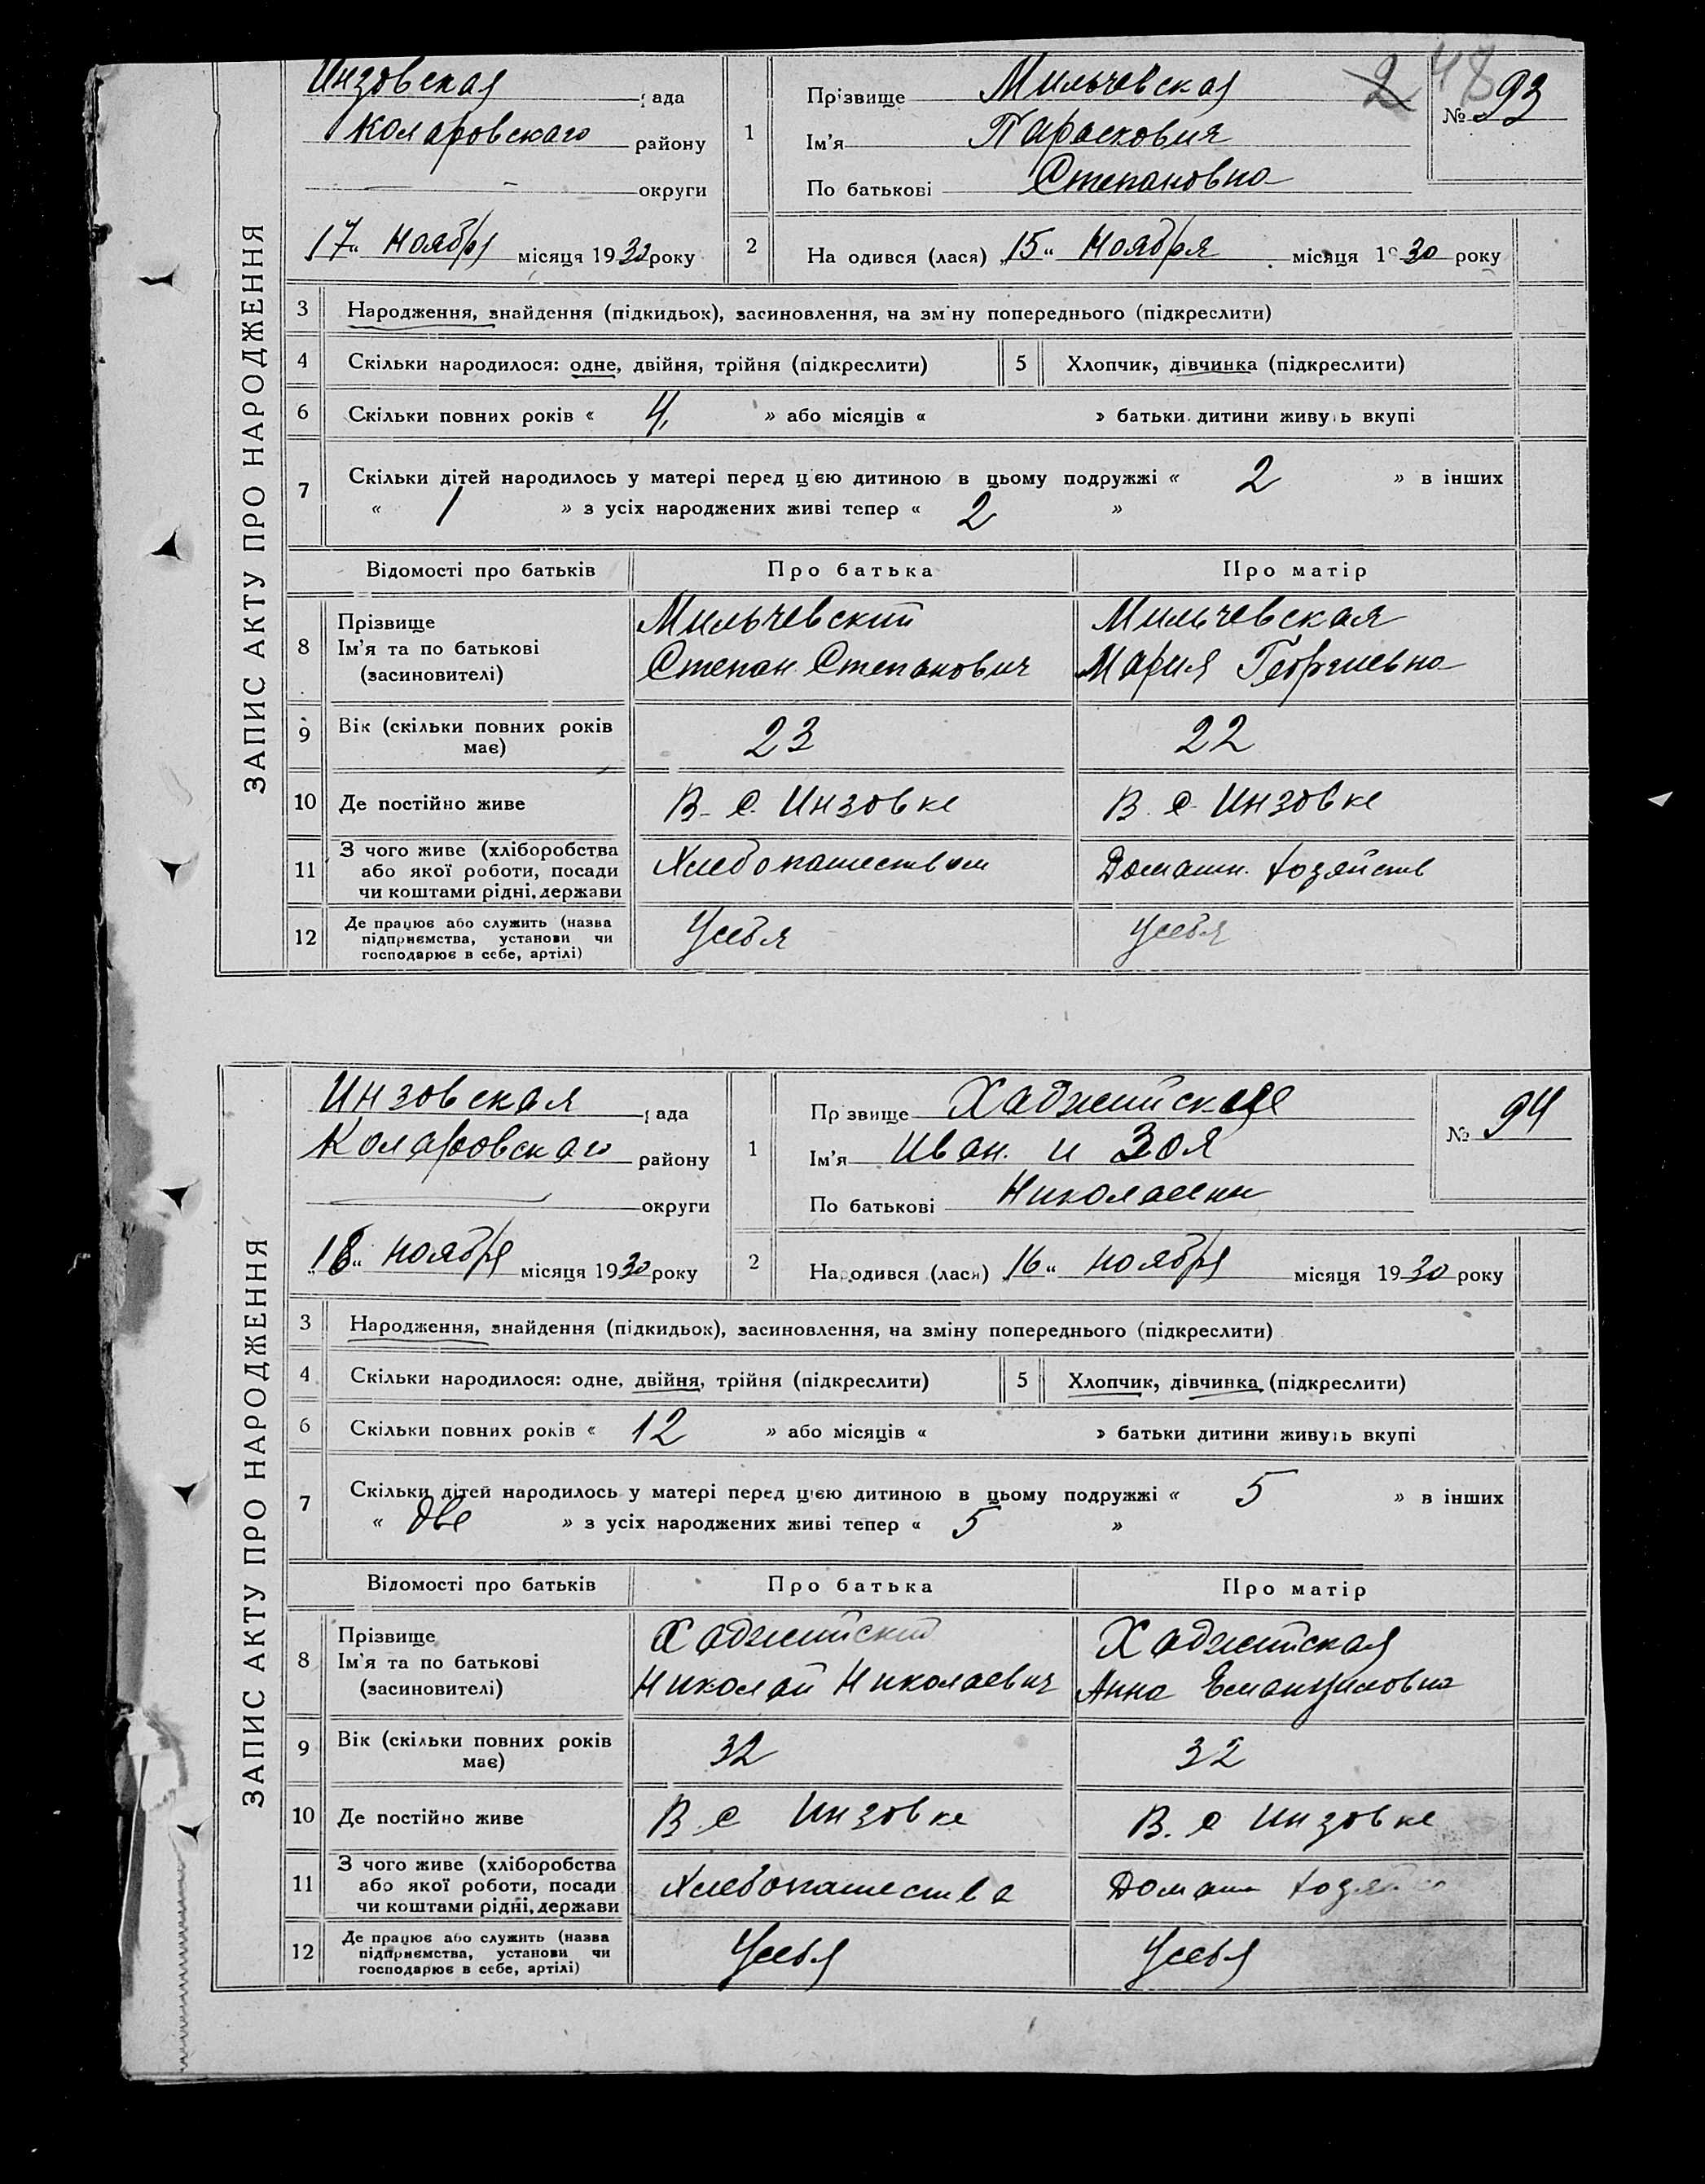 ЗАПИС АКТУ ПРО НАРОДЖЕННЯ
Инзовская рада
Коларовскаго району
округи
17 " ноября місяця 1930 року
1
Прізвище Мильчевская
Ім'я Парасковия
По батькові Степановна
2 48
№ 93
2
На одився (лася) „15 " Ноября місяця 1930 року
3 Народження, знайдення (підкидьок), засиновлення, на зміну попереднього (підкреслити)
4 Скільки народилося: одне, двійня, трійня (підкреслити) 5 Хлопчик, дівчинка (підкреслити)
6 Скільки повних років « 4, » або місяців « » батьки дитини живуть вкупі
7 Скільки дітей народилось у матері перед цією дитиною в цьому подружжі « 2 » в інших
« 1 » з усіх народжених живі тепер « 2 »
Відомості про батьків Про батька Про матір
8 Прізвище Ім'я та по батькові (засиновителі)
Мильчевский Мильчевская
Степан Степанович Мария Георгиевна
9 Вік (скільки повних років має) 23 22
10 Де постійно живе В. с. Инзовке В. с. Инзовке
11 З чого живе (хліборобства або якої роботи, посади чи коштами рідні, держави
Хлебопашеством Домашн. хозяйств
12 Де працює або служить (назва підприємства, установи чи господарює в себе, артілі)
Усебя Усебя
ЗАПИС АКТУ ПРО НАРОДЖЕННЯ
Инзовская рада
Коларовскаго району
округи
„18 " ноября місяця 1930 року
1
Прізвище Хаджийские
Ім'я Иван. и Зоя
По батькові Николаевни
№ 94
2
Народився (лася) „16 " ноября місяця 1930 року
3 Народження, знайдення (підкидьок), засиновлення, на зміну попереднього (підкреслити)
4 Скільки народилося: одне, двійня, трійня (підкреслити) 5 Хлопчик, дівчинка (підкреслити)
6 Скільки повних років « 12 » або місяців « » батьки дитини живуть вкупі
7 Скільки дітей народилось у матері перед цією дитиною в цьому подружжі « 5 » в інших
« две » з усіх народжених живі тепер « 5 »
Відомості про батьків Про батька Про матір
8 Прізвище Ім'я та по батькові (засиновителі)
Хаджийский Хаджийская
Николай Николаевич Анна Емануиловна
9 Вік (скільки повних років має) 32 32
10 Де постійно живе В с Инзовке В. с Инзовке
11 З чого живе (хліборобства або якої роботи, посади чи коштами рідні, держави
Хлебопашества Домашн
12 Де працює або служить (назва підприємства, установи чи господарює в себе, артілі)
Усебя Усебя